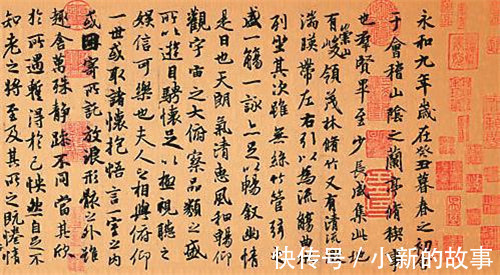 永和九年歲在癸丑暮春之初
于會稽山陰之蘭亭脩稧
也群賢畢至少長咸集此
有崇山峻領茂林脩竹又有清
湍暎帶左右引以為流觴曲
列坐其次雖無絲竹管弦
盛一觴一詠亦足以暢叙幽情
是日也天朗氣清惠風和暢仰
觀宇宙之大俯察品類之盛
所以遊目騁懷足以極視聽之
娛信可樂也夫人之相與俯仰
一世或取諸懷抱悟言一室之內
或因寄所託放浪形骸之外雖
趣舍萬殊靜躁不同當其欣
於所遇暫得於己怏然自足不
知老之將至及其所之既惓情
快传号/小新的故事